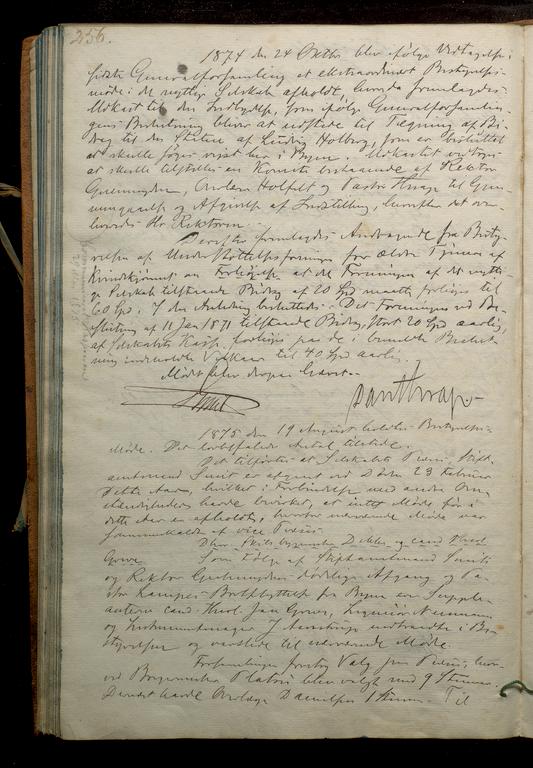 256.
1874 den 24 Oktbr blev ifølge Vedtagelse i
sidste Generalforsamling et extraordinært Bestyrelses-
møde i det nyttige Selskab afholdt, hvor da fremlagdes
Udkast til den Indbydelse, som ifølge Generalforsamlin-
gens Beslutning bliver at udstede til Tegning af Bi-
drag til den Statue af Ludvig Holberg, som er besluttet
at skulle søges rejst her i Byen. Udkastet vedtoges
at skulle tilstilles en Komite bestaaende af Rektor
Overlærer Holfeldt og Pastor til Gjen-
nemgaaelse og Afgivelse af Indstilling, hvorefter det over-
leveredes Hr Rektoren.
Derefter fremlagdes Andragende fra Besty-
relsen af Understøttelsesforeningen for ældre Tjenere af
Kvindekjønnet om Forhøjelse af det Foreningen af det nytti-
ge Selskab tilstaaede Bidrag af 20 Spd maatte forhøjes til
60 Spd. I den Anledning besluttedes: Det Foreningen ved Be-
slutning af 11 Jan 1871 tilstaaede Bidrag, stort 20 Spd aarlig,
af Selskabets Kasse, forhøjes paa de i bemeldte Beslut-
ning indeholdte Vilkaar til 40 Spd aarlig.
Mødet blev derpaa hævet.
1875 den 19 August holdtes Bestyrelses-
Møde. Det lovbefalede Antal tilstede.
Det tilførtes at Selskabets Præses, Stift-
amtmand Smit er afgaaet ved Døden 23 Februar
dette Aar, hvilket i Forbindelse med andre Om-
stændigheder havde bevirket, at intet Møde før i
dette Aar er afholdt, hvorfor nærværende Møde var
sammenkaldt af vice Præses.
Som Følge af Stiftamtmand Smits
og Rektor dødelige Afgang og Pa-
stor Kampes Bortflyttelse fra Byen er Supple-
anterne cand. theol. Jan Greve, Ingeniør Neumann
og Instrumentmager J indtraadte i Be-
styrelsen og varslede til nærværende Møde.
Forsamlingen foretog Valg paa Præses, hvor-
ved Borgermester Platou blev valgt med 9 Stemmer.
Dernæst havde Overlæge Danielssen 1 Stemme. Til